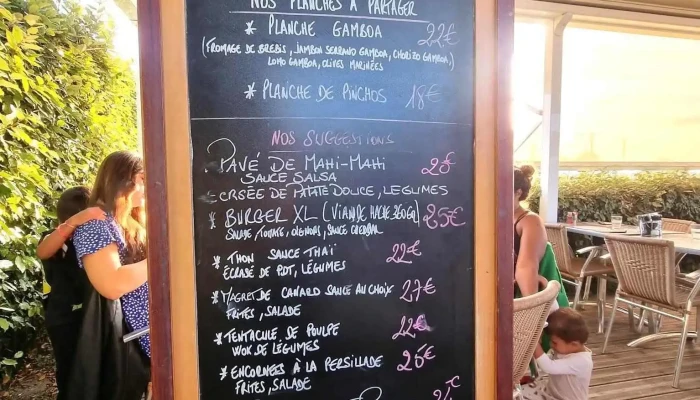 NOS PLANCHES À PARTAGER
* PLANCHE GAMBOA 22€
(FROMAGE DE BREBIS, JAMBON SERRANO GAMBOA, CHORIZO GAMBOA,
LOMO GAMBOA, OLIVES MARINÉES)
* PLANCHE DE PINCHOS 18€
NOS SUGGESTIONS
PAVÉ DE MAHI-MAHI
SAUCE SALSA
CRSÉE DE PATATE DOUCE, LEGUMES
* BURGER XL (VIANDE HACHÉ 360G) 25€
SALADE, TOMATE, OIGNONS, SAUCE CHEDDAR
* THON SAUCE THAÏ 22€
ÉCRASÉ DE PDT, LÉGUMES
* MAGRET DE CANARD SAUCE AU CHOIX 27€
FRITES, SALADE
* TENTACULE DE POULPE
WOK DE LÉGUMES
* ENCORNETS À LA PERSILLADE
FRITES, SALADE